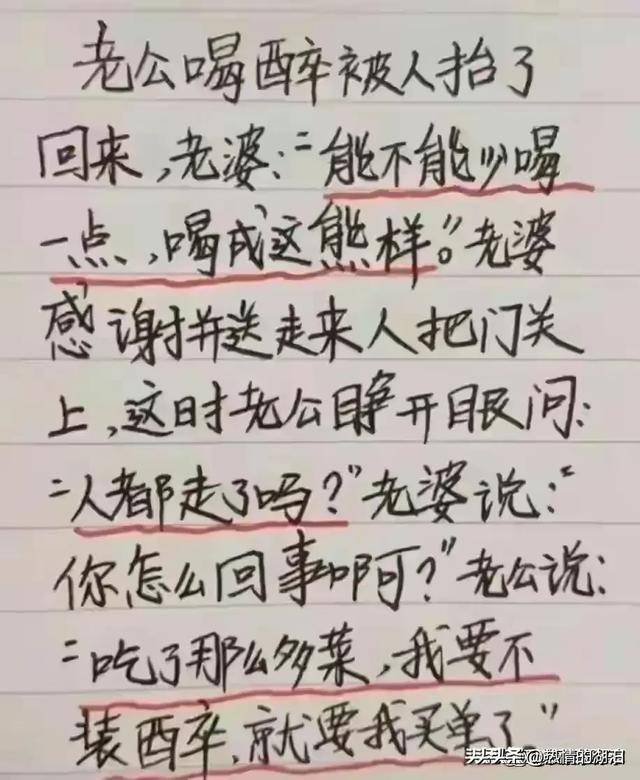 老公喝醉被人抬了
回来,老婆:“能不能少喝
一点,喝成这熊样。”老婆
感谢并送走来人把门关
上,这时老公睁开眼问:
“人都走了吗?”老婆说:“
你怎么回事啊?”老公说:
“吃了那么多菜,我要不
装醉,就要我买单了。”
头条 @热情的湖泊